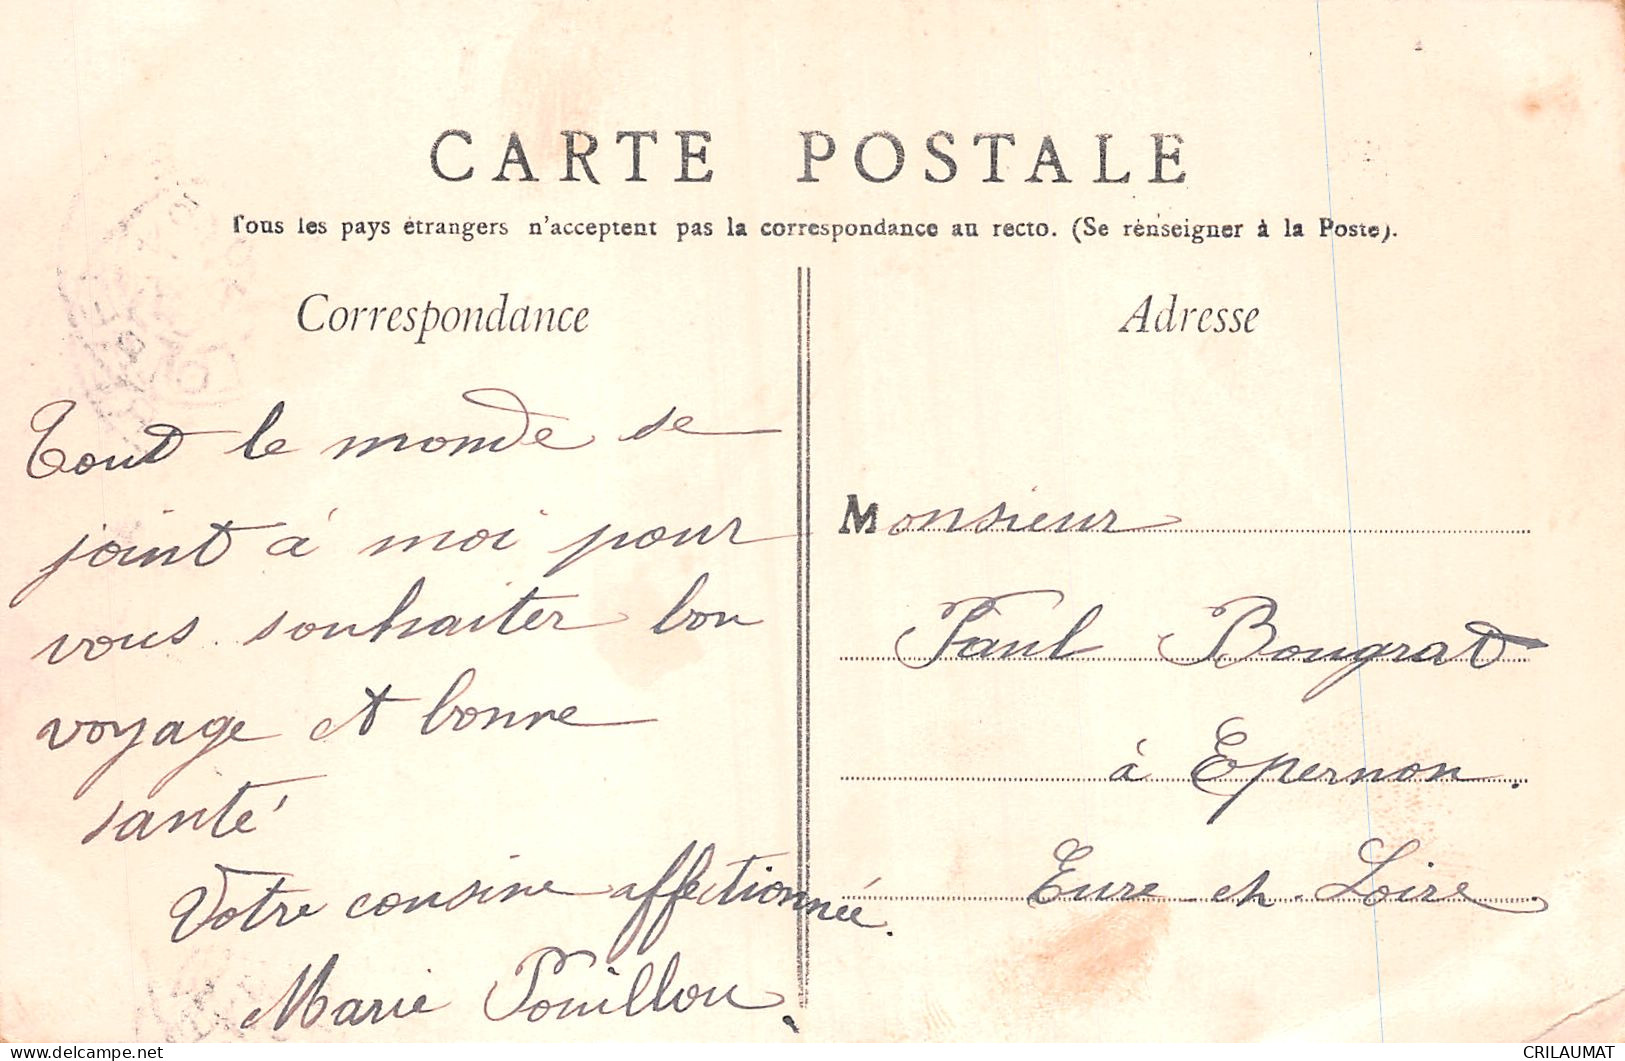 CARTE POSTALE
Tous les pays étrangers n'acceptent pas la correspondance au recto. (Se renseigner à la Poste).
Correspondance
Tout le monde se
joint à moi pour
vous souhaiter bon
voyage et bonne
santé
Votre cousine affectionnée.
Marie Pouillon.
Adresse
Monsieur
Paul Bougrat
à Epernon.
Eure et Loire
delcampe.net
CRILAUMAT